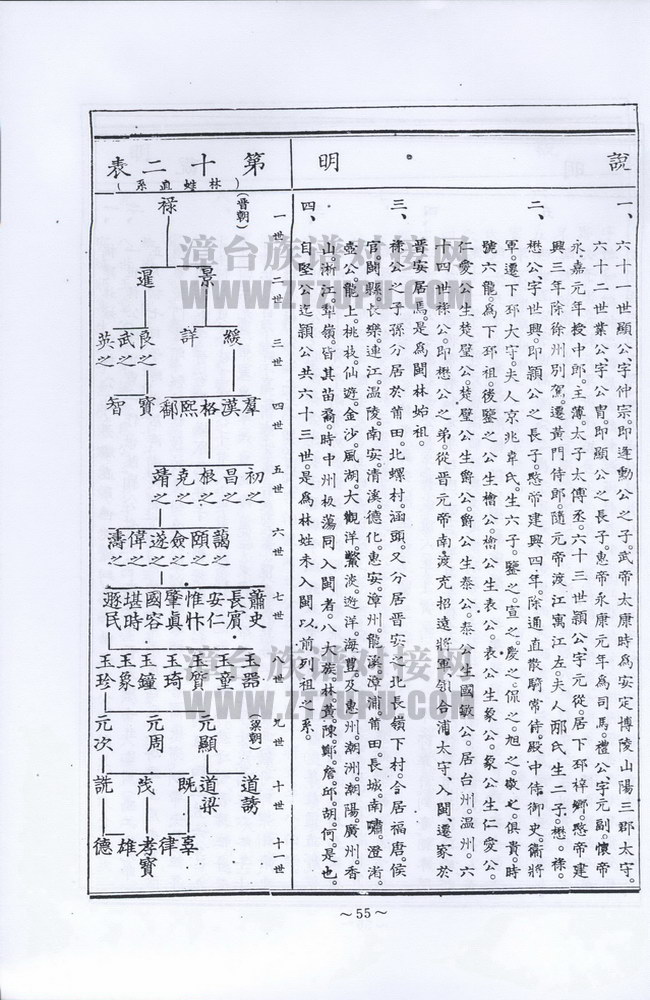 說　　　　明
一、六十一世顯公、字仲宗。即遂勳公之子。武帝太康時爲安定博陵山陽三郡太守。
六十二世葉公、字公胄。即顯公之長子。惠帝永康元年爲司馬。禮公、字元副。懷帝
永嘉元年授中郎。王薄。太子太傅丞。六十三世穎公、字元從。居下邳梓鄉。愍帝建
興三年除徐州別駕。遷黃門侍郎。隨元帝渡江寓江左。夫人邴氏生二子。懋。祿。
二、懋公、字世興。即穎公之長子。愍帝建興四年。除通直散騎常侍。殿中侍御史。衛將
軍。遷下邳太守。夫人京兆韋氏。生六子。鑒之。宣之。慶之。保之。旭之。敬之。俱貴。時
號六龍。爲下邳祖。後鑒之公生檜公。檜公生表公。表公生象公。象公生仁愛公。
仁愛公生焚璧公。焚璧公生爵公。爵公生泰公。泰公生國敏公。居台州。溫州。六
十四世祿公。即懋公之弟。從晉元帝南渡。充招遠將軍。領合浦太守、入閩、遷家於
晉安居馬。是爲閩林始祖。
三、祿公之子孫分居於莆田。北螺村。涵頭。又分居晉安之北長嶺下村。合居福唐。侯
官。閩縣。長樂。連江。溫陵。南安。清溪。德化。惠安。漳州。龍溪。漳浦。莆田。長城。南嘯。澄渚。
壺公。龍上。桃枝。仙遊。金沙。風湖。大觀洋。鱉淡。遊洋。海豐。及惠州。潮洲。潮陽。廣州。香
山。淅江。犁嶺。皆其苗裔。時中州板蕩同入閩者。八大族。林。黃。陳。鄭。詹。邱。胡。何。是也。
四、自堅公迄穎公共六十三世。是爲林姓未入閩以前列祖之系。
第十二表
（林蛙直系）
（晉朝）
一世　祿
二世　景　暹
三世　緩　詳　良之　武之　英之
四世　羣　漢　格　熙　鄱　寶　智
五世　初之　昌之　根之　堯之　靖之
六世　謁之　頤之　儉之　遂之　偉之　濤之
七世　蕭史　長賓　安仁　惟忭　肇眞　國容　堪時　遯民
八世　玉器　玉童　玉質　玉琦　玉鐘　玉彖　玉珍
（梁朝）
九世　元顯　元周　元次
十世　道誘　道梁　既　茂　誂
十一世　臺　律　孝寶　雄　德
～55～
漳台族谱对接网
www.ZTZUPU.COM
漳台族谱对接网
www.ZTZUPU.COM